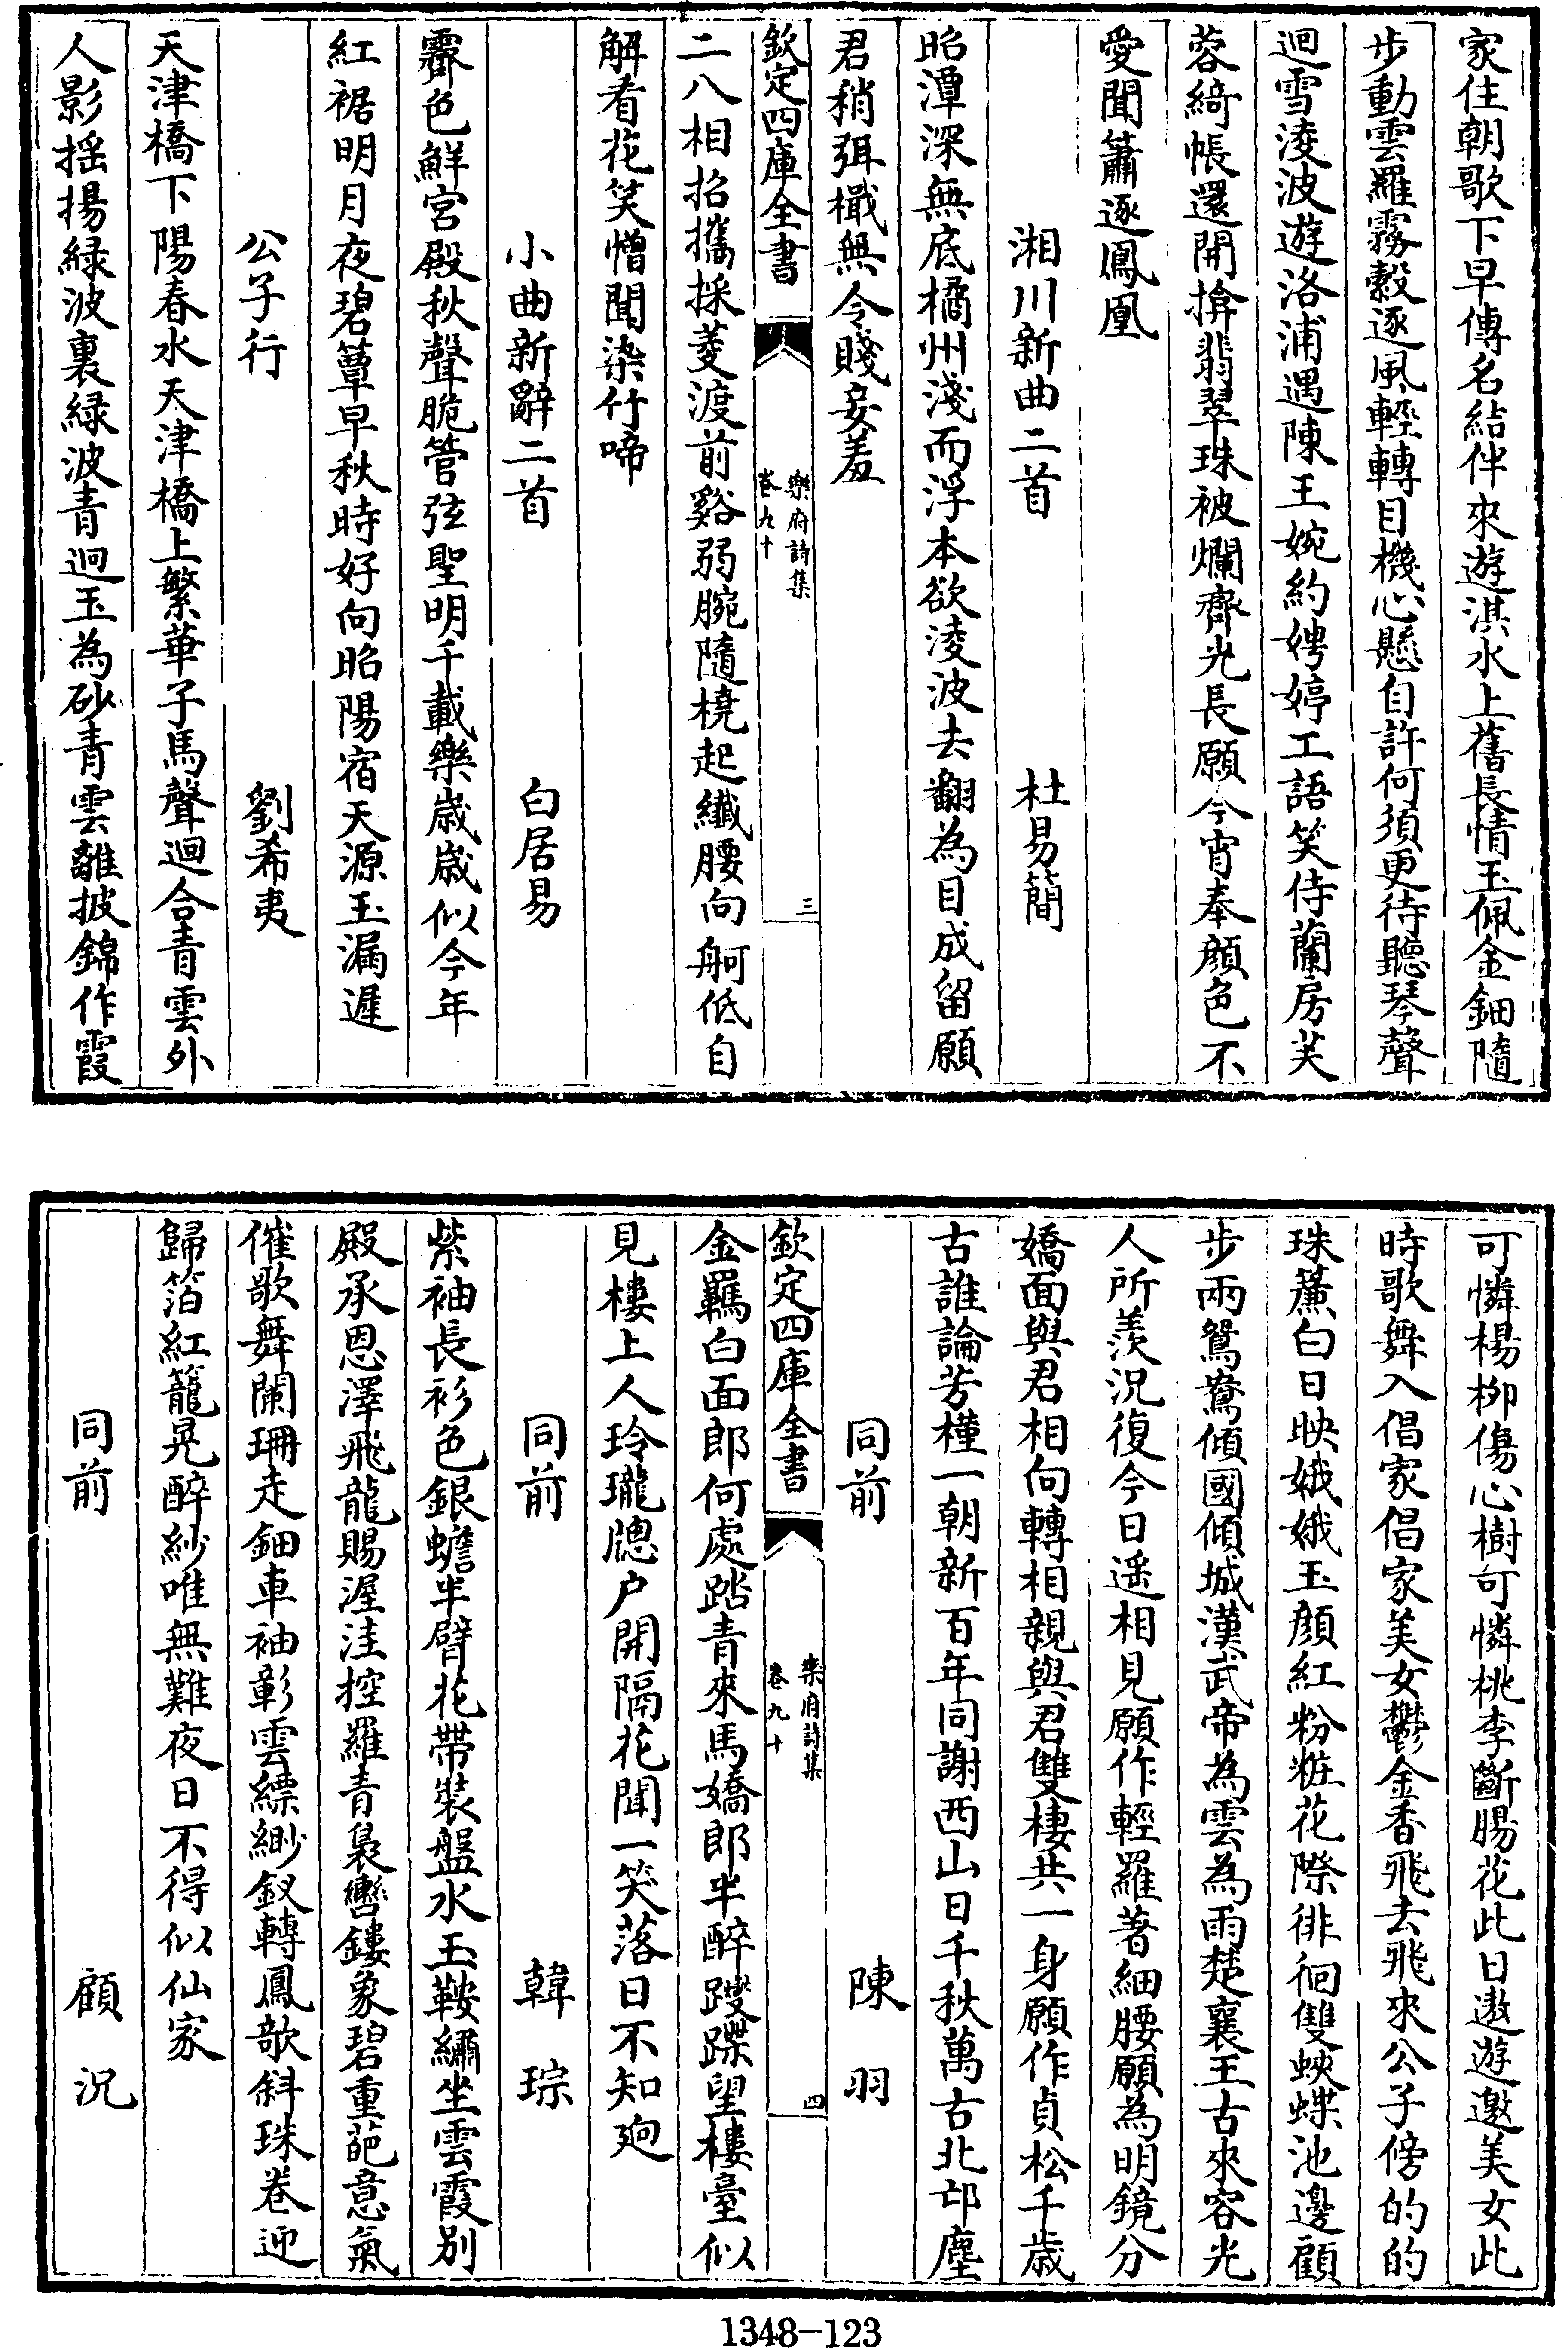 家住朝歌下早傳名結伴來遊淇水上舊長情玉佩金鈿隨
步動雲羅霧縠逐風輕轉目機心懸自許何須更待聽琴聲
迴雪淩波遊洛浦遇陳王婉約娉婷工語笑侍蘭房芙
蓉綺帳還開揜翡翠珠被爛齊光長願今宵奉顔色不
愛聞簫逐鳳凰
湘川新曲二首 杜易簡
昭潭深無底橘州淺而浮本欲淩波去翻為目成留願
君稍弭檝無令賤妾羞
欽定四庫全書
樂府詩集
卷九十
三
二八相招攜採菱渡前谿弱腕隨橈起纖腰向舸低自
解看花笑憎聞染竹啼
小曲新辭二首 白居易
霽色鮮宮殿秋聲脆管弦聖明千載樂歲歲似今年
紅裾明月夜碧簟早秋時好向昭陽宿天源玉漏遲
公子行 劉希夷
天津橋下陽春水天津橋上繁華子馬聲迴合青雲外
人影揺揚緑波裏緑波青迴玉為砂青雲離披錦作霞
可憐楊栁傷心樹可憐桃李斷腸花此日遨遊邀美女此
時歌舞入倡家倡家美女鬱金香飛去飛來公子傍的的
珠簾白日映娥娥玉顔紅粉粧花際徘徊雙蛺蝶池邊顧
步兩鴛鴦傾國傾城漢武帝為雲為雨楚襄王古來容光
人所羨況復今日遥相見願作輕羅著細腰願為明鏡分
嬌面與君相向轉相親與君雙棲共一身願作貞松千歳
古誰論芳槿一朝新百年同謝西山日千秋萬古北邙塵
同前 陳羽
欽定四庫全書
樂府詩集
卷九十
四
金羈白面郎何處踏青來馬嬌郎半醉躞蹀望樓臺似
見樓上人玲瓏牎户開隔花聞一笑落日不知廻
同前 韓琮
紫袖長衫色銀蟾半臂花帶裝盤水玉鞍繡坐雲霞别
殿承恩澤飛龍賜渥洼控羅青裊轡鏤象碧重葩意氣
催歌舞闌珊走鈿車袖彰雲縹緲釵轉鳳欹斜珠卷迎
歸箔紅籠晃醉紗唯無難夜日不得似仙家
同前 顧況
1348-123